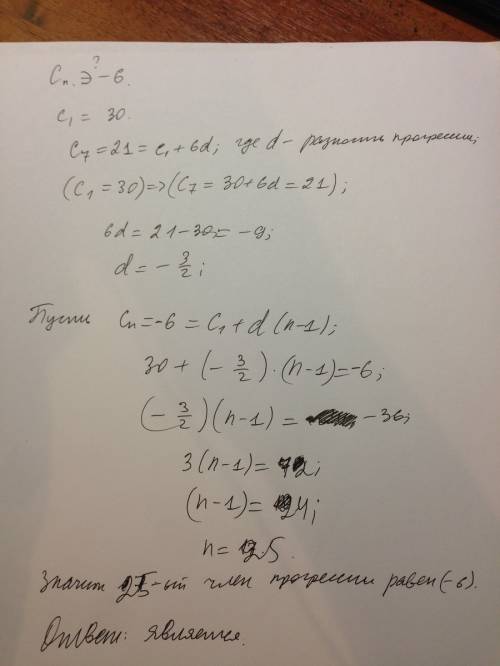 Cₙ ∋? -6.
c₁ = 30.
C₇ = 21 = c₁ + 6d; где d - разность прогрессии;
(C₁ = 30) => (C₇ = 30 + 6d = 21);
6d = 21 - 30 = -9;
d = - 3/2;
Пусть Cₙ = -6 = C₁ + d(n-1);
30 + (- 3/2) · (n-1) = -6;
(- 3/2)(n-1) = -36;
3(n-1) = 72;
(n-1) = 24;
n = 25.
Значит 25-ый член прогрессии равен (-6).
Ответ: является.